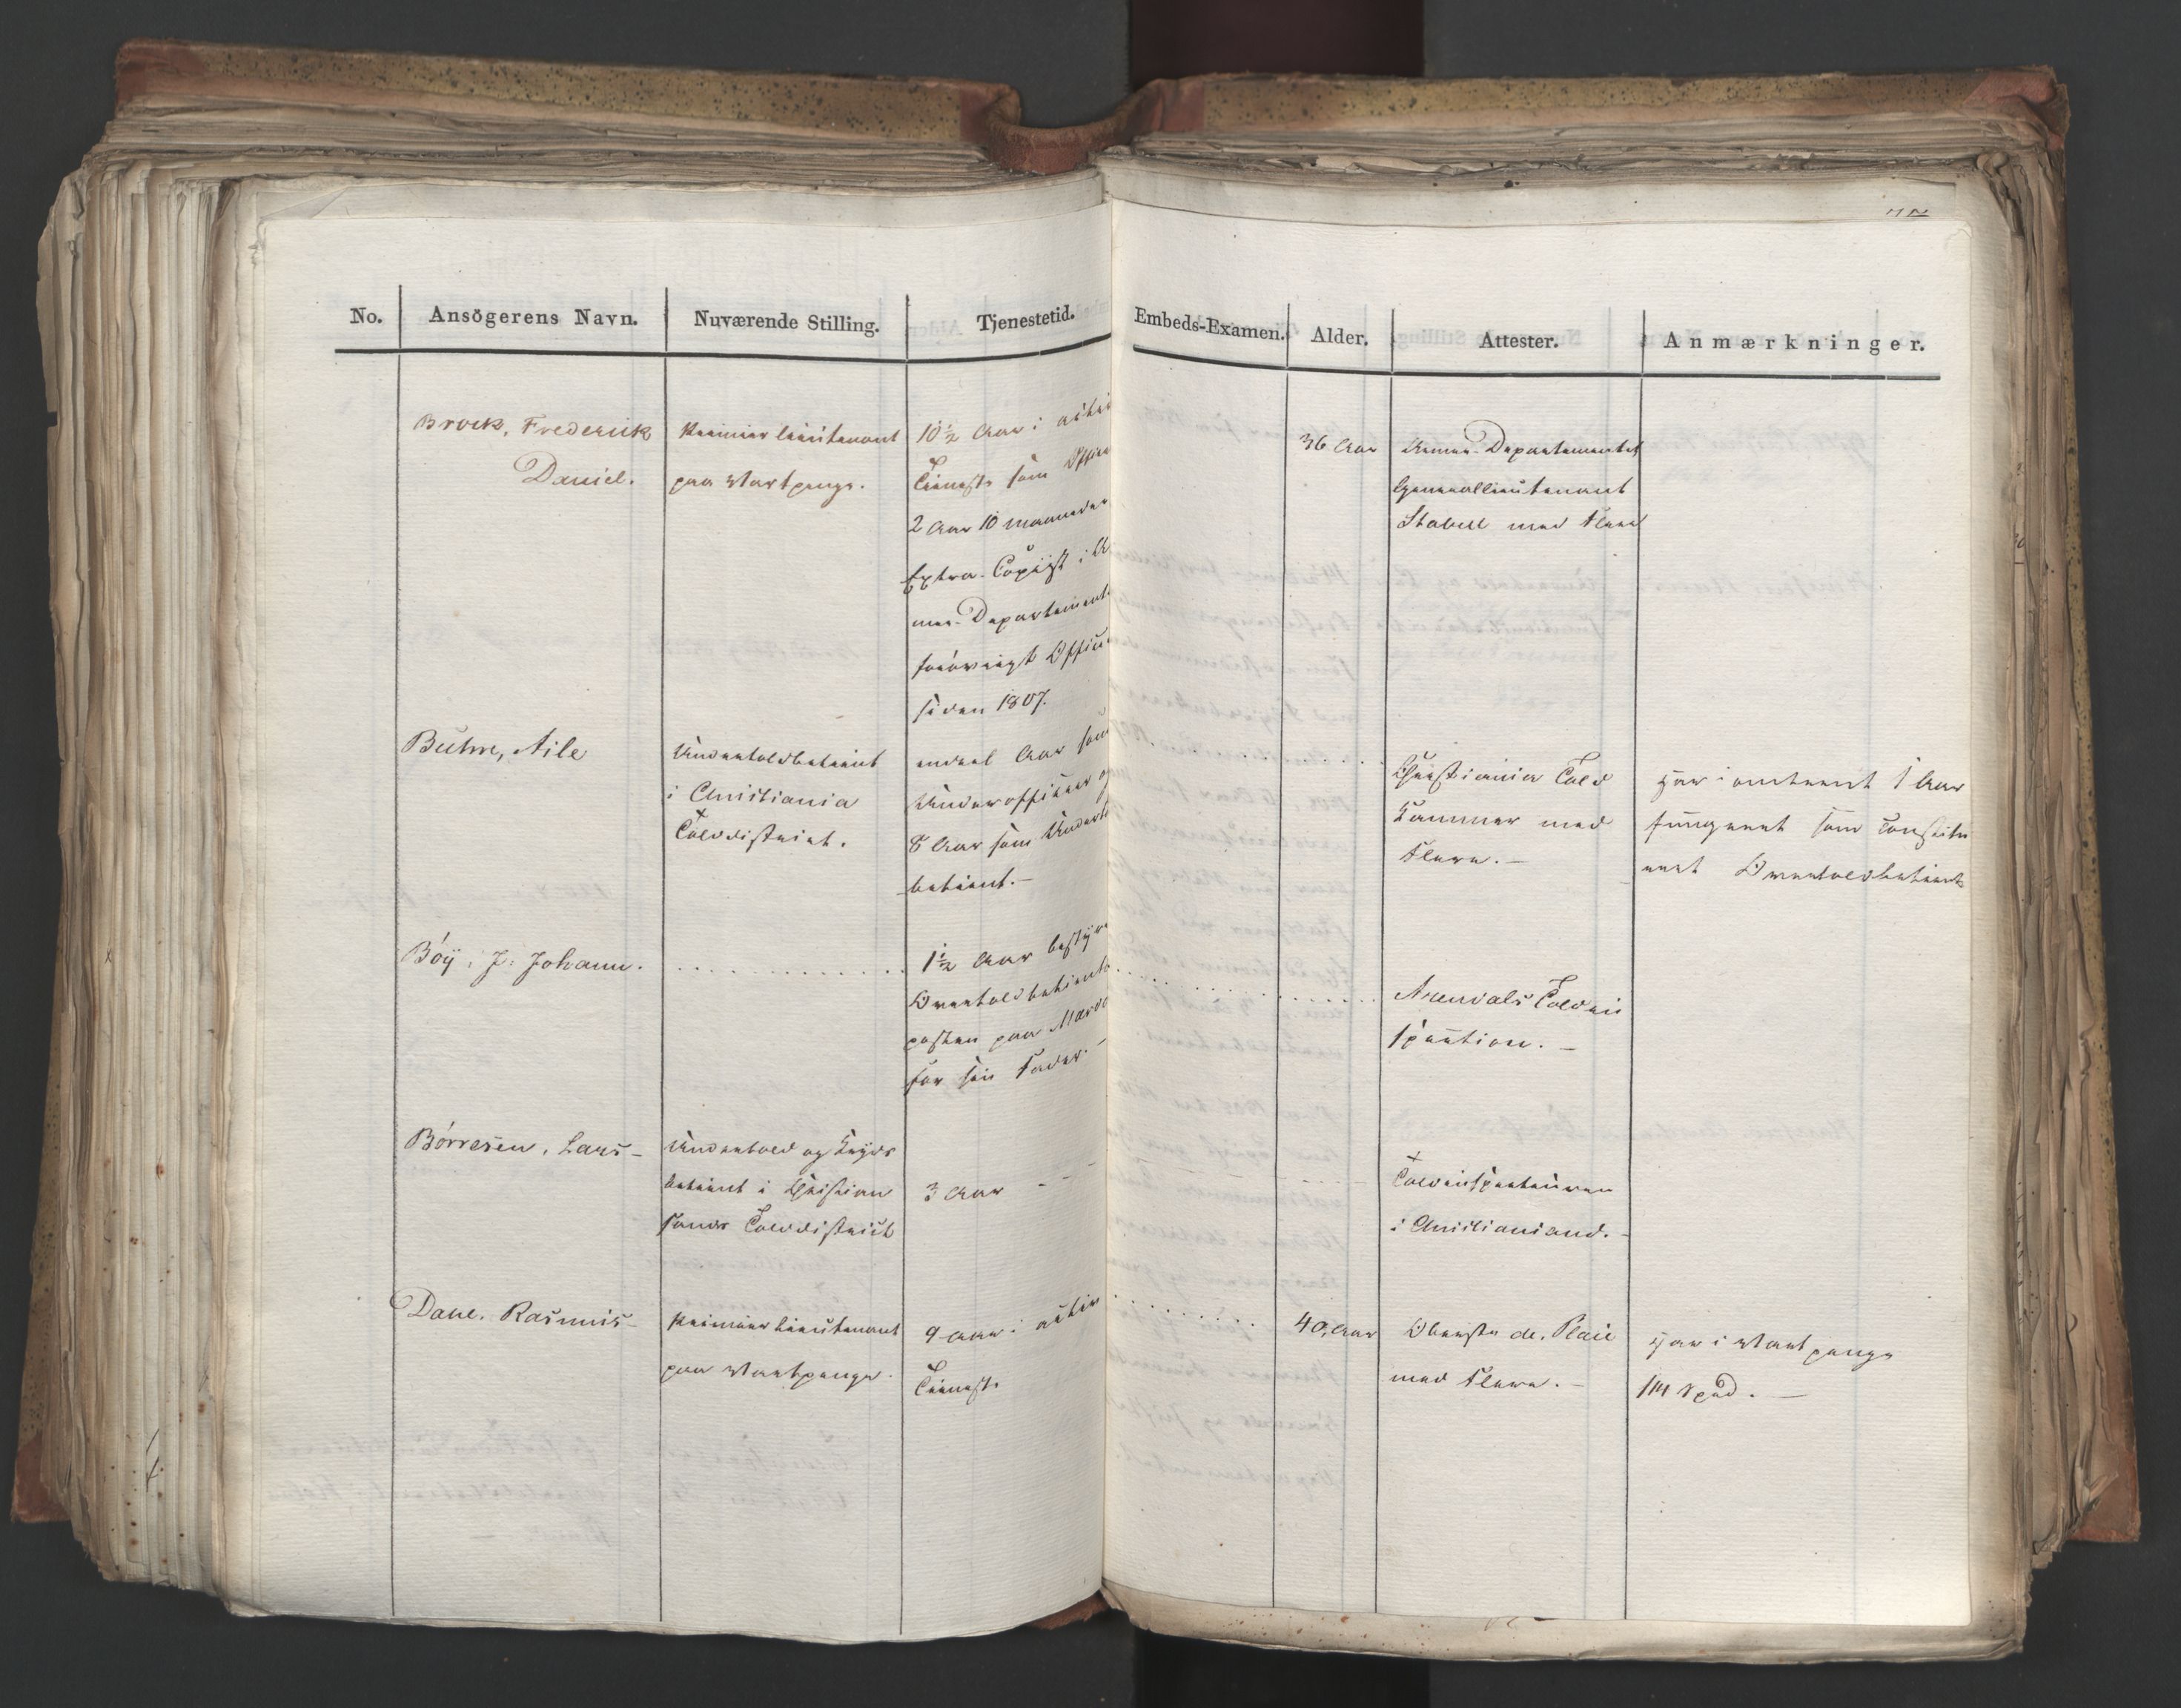 No. Ansögerens Navn. Nuværende Stilling. Tjenestetid. Embeds-Examen. Alder. Attester. Anmærkninger.
Brock, Frederick
Daniel.
Premier lieutenant
paa Vartpenge.
10½ Aar i activ
Tieneste som Officer
2 Aar 10 maaneder
Extra-Copiist i Ar
mee-Departementet
forövrigt Officer
siden 1807.
36 Aar
Armee-Departementet
Generallieutenant
Stabell med Flere
Buhn,
Undertoldbetient
i Christiania
Tolddistrict.
endeel Aar som
Underofficeer og
8 Aar som Undertold
betient.-
Christiania Told
Kammer med
Flere.-
har omtrent 1 Aar
fungeret som constitu
eret Overtoldbetient
Böÿ, J. Johann.
1½ Aar bestyret
Overtoldbetient
posten paa
for sin Fader. -
Arendals Toldin
spection. -
Börresen, Lars-
Undertold og Krÿds
betient i Christian
sands Tolddistrict
3 Aar
Toldinspecteuren
i Christiansand.-
Dane, Rasmus-
Premier lieutenant
paa Vartpenge.
9 Aar i activ
Tieneste
40, Aar
Oberste de, Place
med Flere.-
har i Vartpenge
114 Spd. -